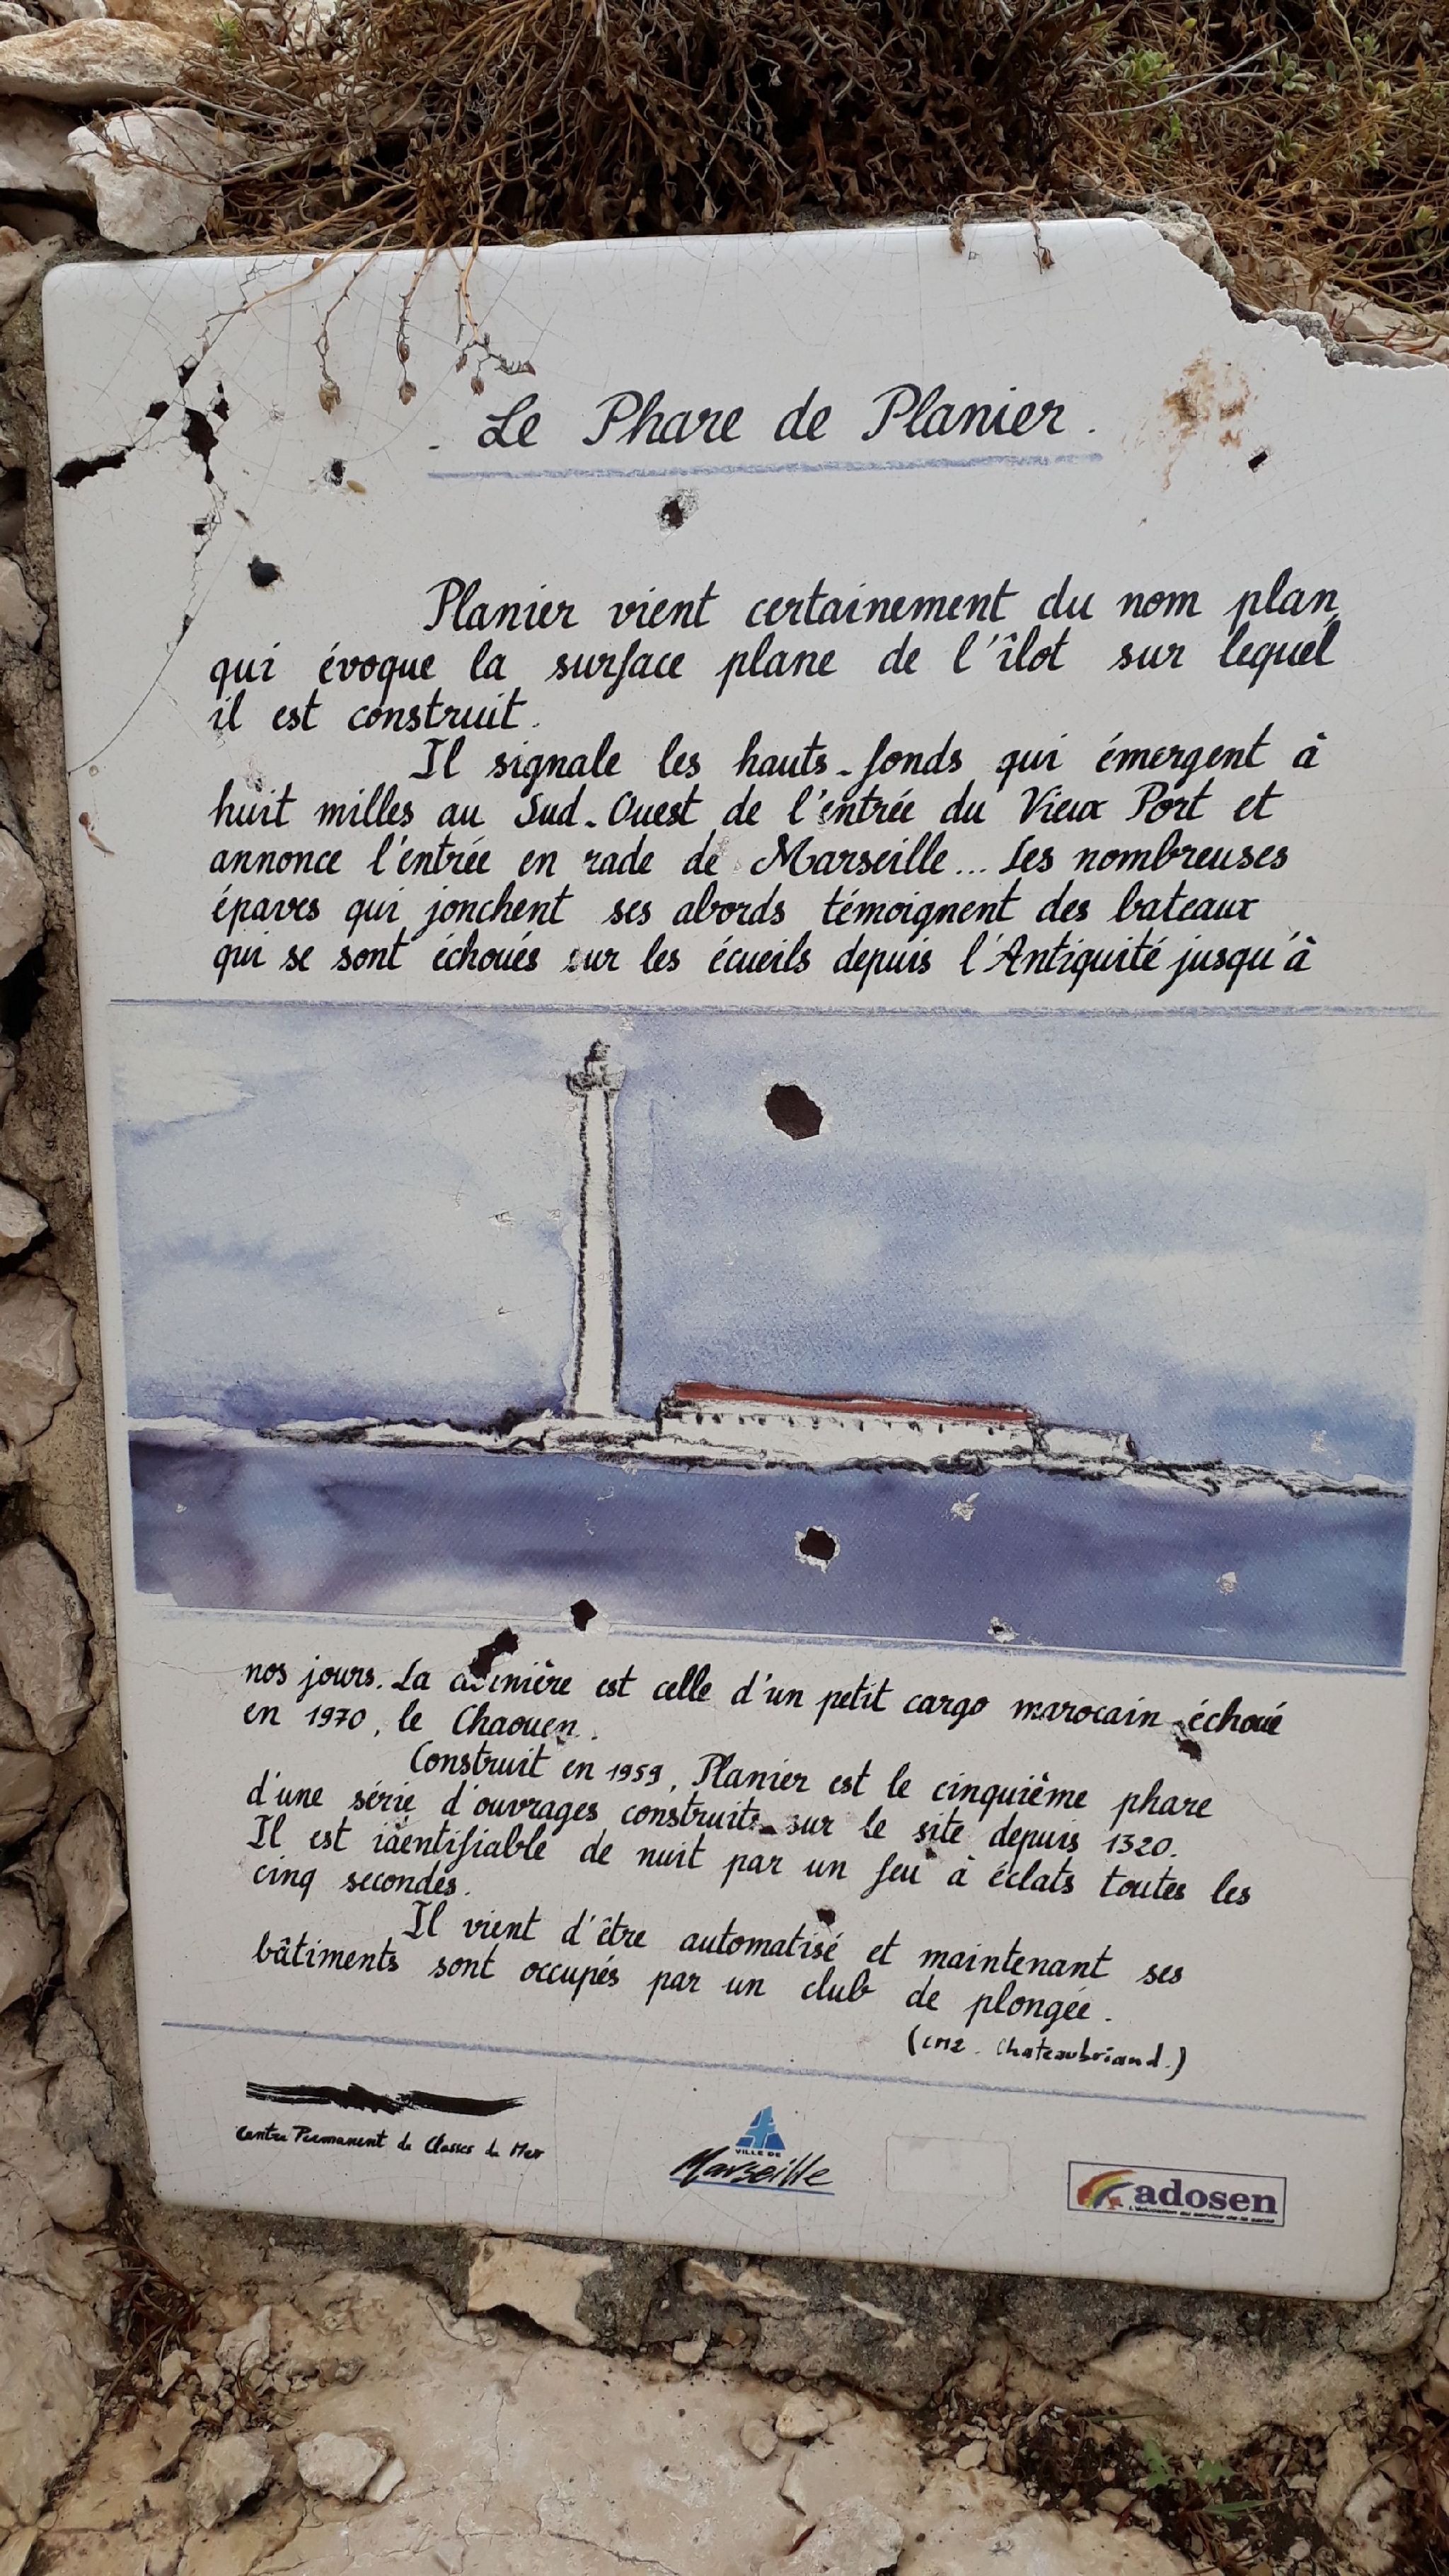 . Le Phare de Planier .
Planier vient certainement du nom plan
qui évoque la surface plane de l'îlot sur lequel
il est construit.
Il signale les hauts-fonds qui émergent à
huit milles au Sud-Ouest de l'entrée du Vieux Port et
annonce l'entrée en rade de Marseille... Les nombreuses
épaves qui jonchent ses abords témoignent des bateaux
qui se sont échoués sur les écueils depuis l'Antiquité jusqu'à
nos jours. La dernière est celle d'un petit cargo marocain échoué
en 1970, le Chaouen.
Construit en 1959, Planier est le cinquième phare
d'une série d'ouvrages construits sur le site depuis 1320.
Il est identifiable de nuit par un feu à éclats toutes les
cinq secondes.
Il vient d'être automatisé et maintenant ses
bâtiments sont occupés par un club de plongée.
(CM2. Chateaubriand.)
Centre Permanent de Classes de Mer
VILLE DE
Marseille
adosen
L'éducation au service de la santé